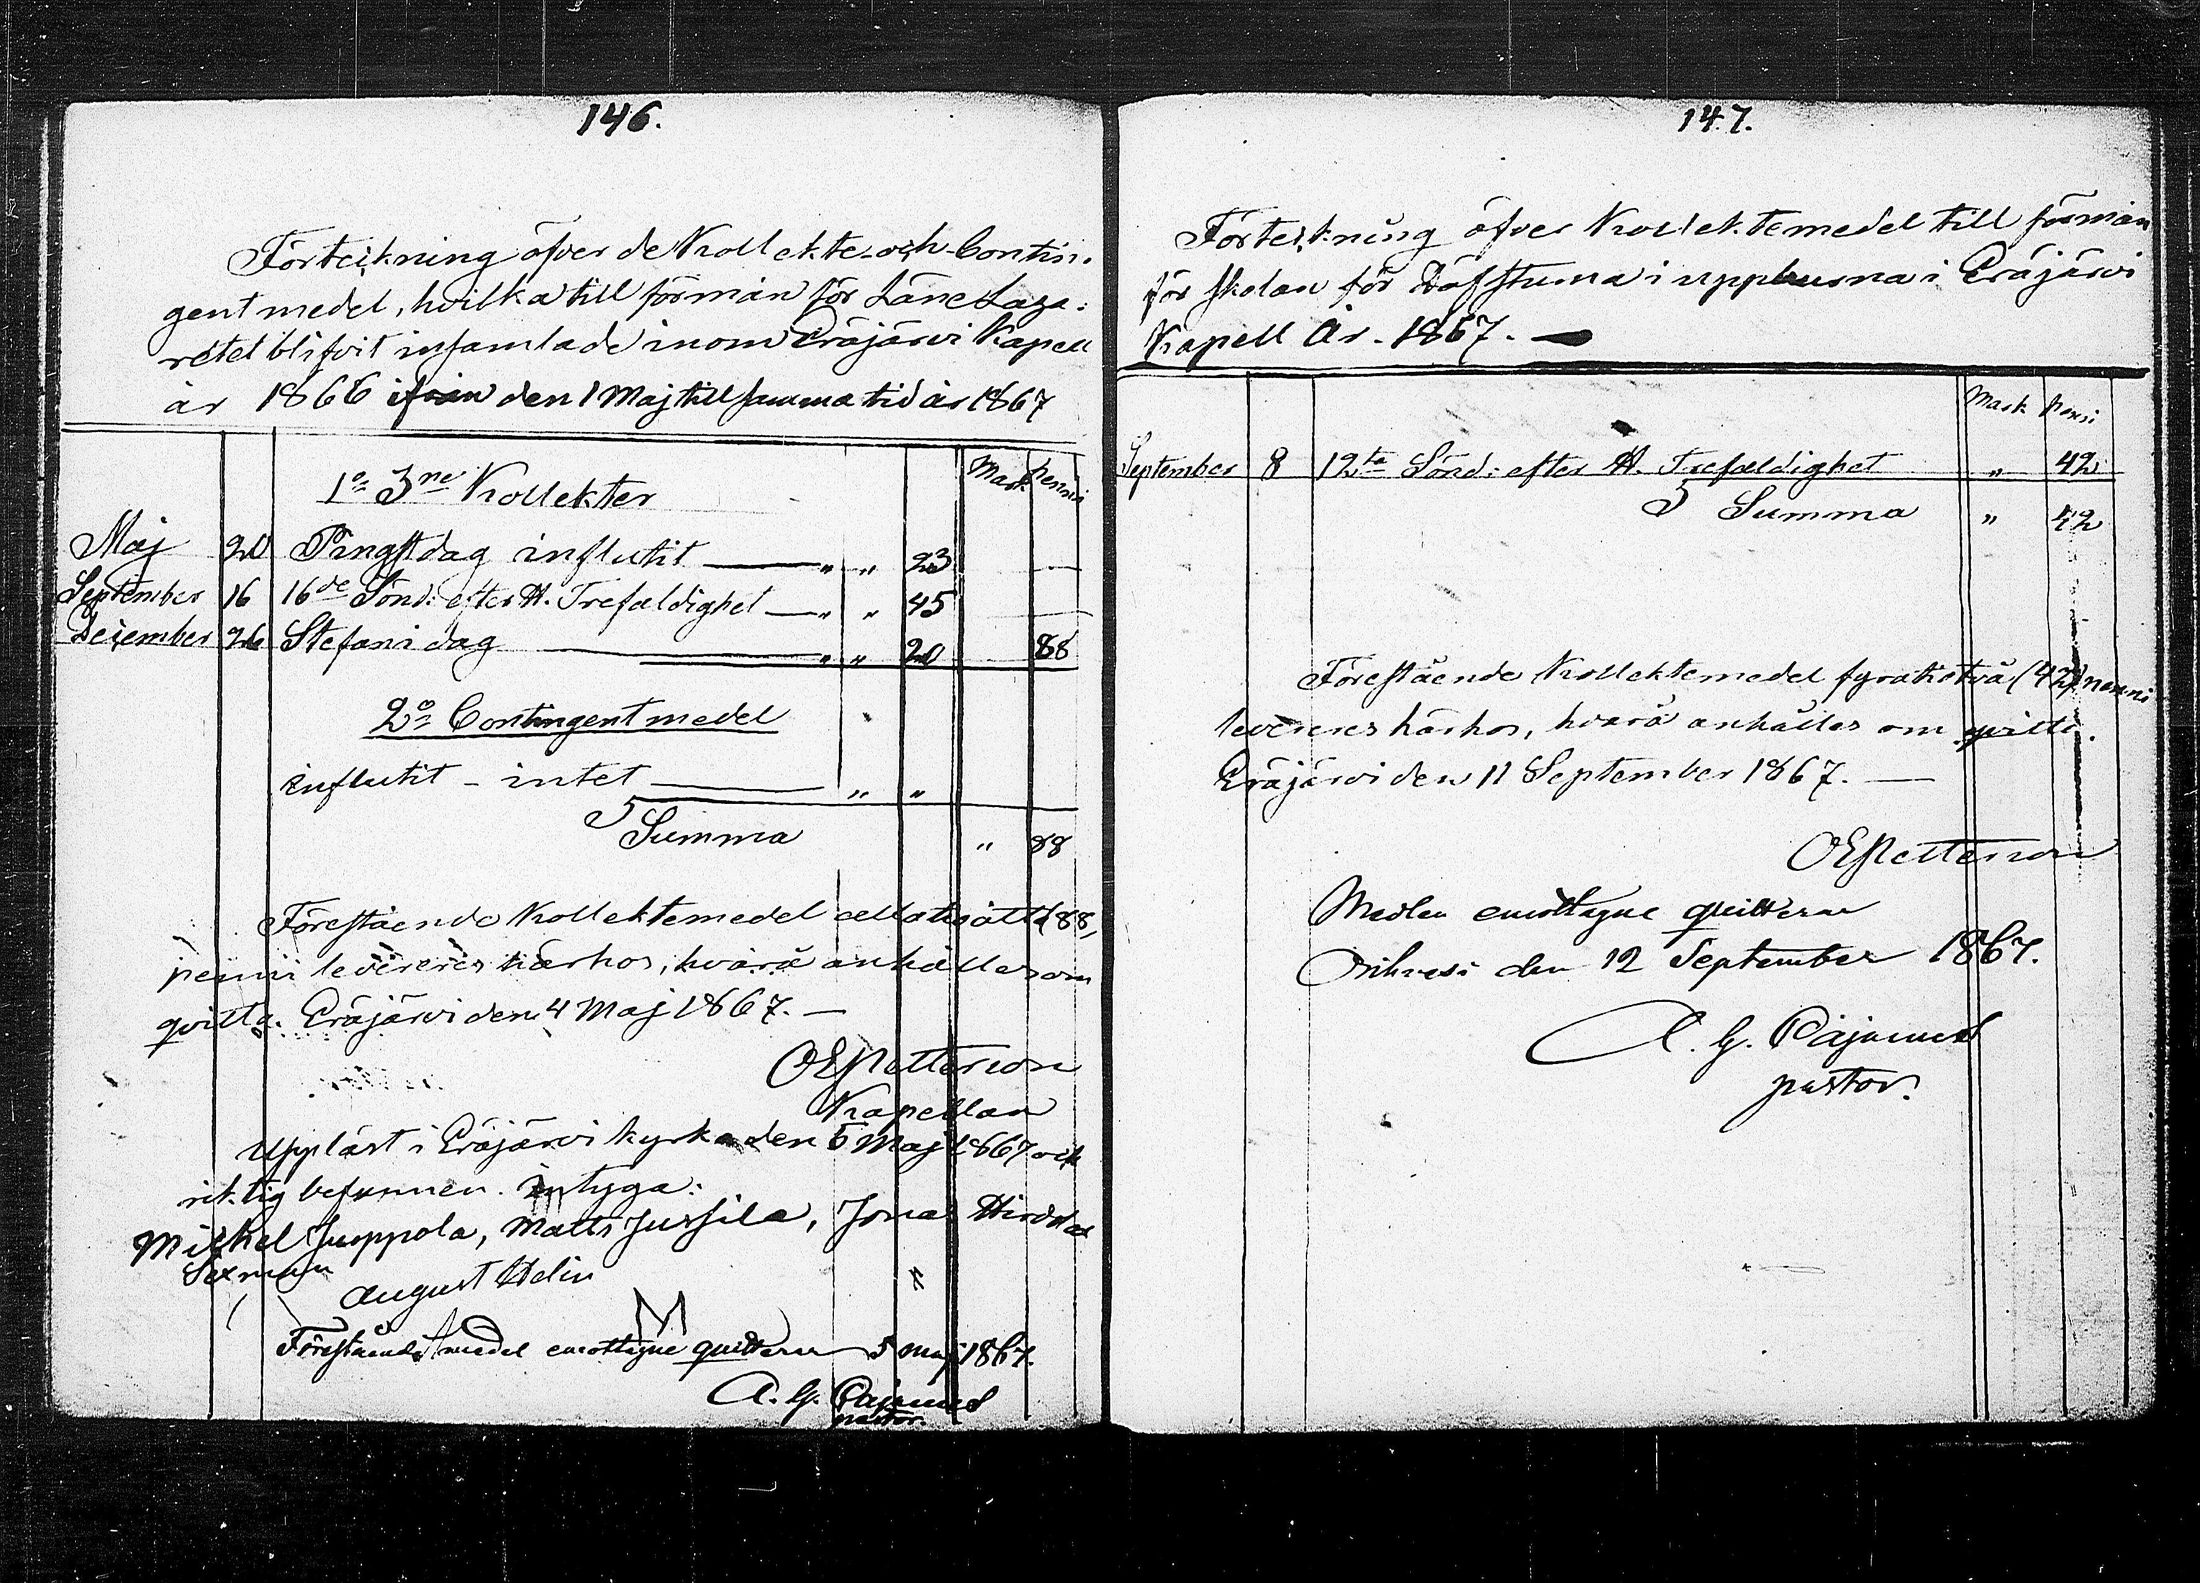 146.
Förteikning öfver de Kollekte och Contin-
gent medel, hvilka till förmån för Läne Laza-
retet blifvit insamlade inom Eräjärvi Kapell
år 1866 ifrån den 1 Maj till samma tid år 1867
Mark Penni
1o 3ne Kollekter
Maj 20 Pingstdag influtit — " " 23 —
September 16 16de Sönd: efter H. Trefaldighet — " " 45 —
December 26 Stefani dag — " " 20 88
2o Contingent medel
influtit - intet — " "
Summa " 88
Förestående Kollektemedel åttatioåtta (88)
penni levereres härhos, hvarå anhålles om
qvitto. Eräjärvi den 4 Maj 1867. —
OEPetterson
Kapellan
Uppläst i Eräjärvi kyrka den 5 Maj 1867 och
riktig befunnen. intyga:
Mickel Juoppola, Matts Jussila, Jonas
Sexman August Helin
Förestående medel emottagne quitteras 5 maj 1867.
A. G. Pajunus
pastor.
147.
Förteikning öfver Kollektemedel till förmån
för skolan för Döfstuma i Eräjärvi
Kapell År. 1867. —
Mark Penni
September 8 12te Sönd: efter H. Trefaldighet " 42
Summa " 42
Förestående Kollektemedel fyratiotvå (42) penni
levereres härhos, hvarå anhålles om qvitto.
Eräjärvi den 11 September 1867. —
OEPetterson
Medlen emottagne quitteras
Orihvesi den 12 September 1867.
A. G. Pajunus
pastor.